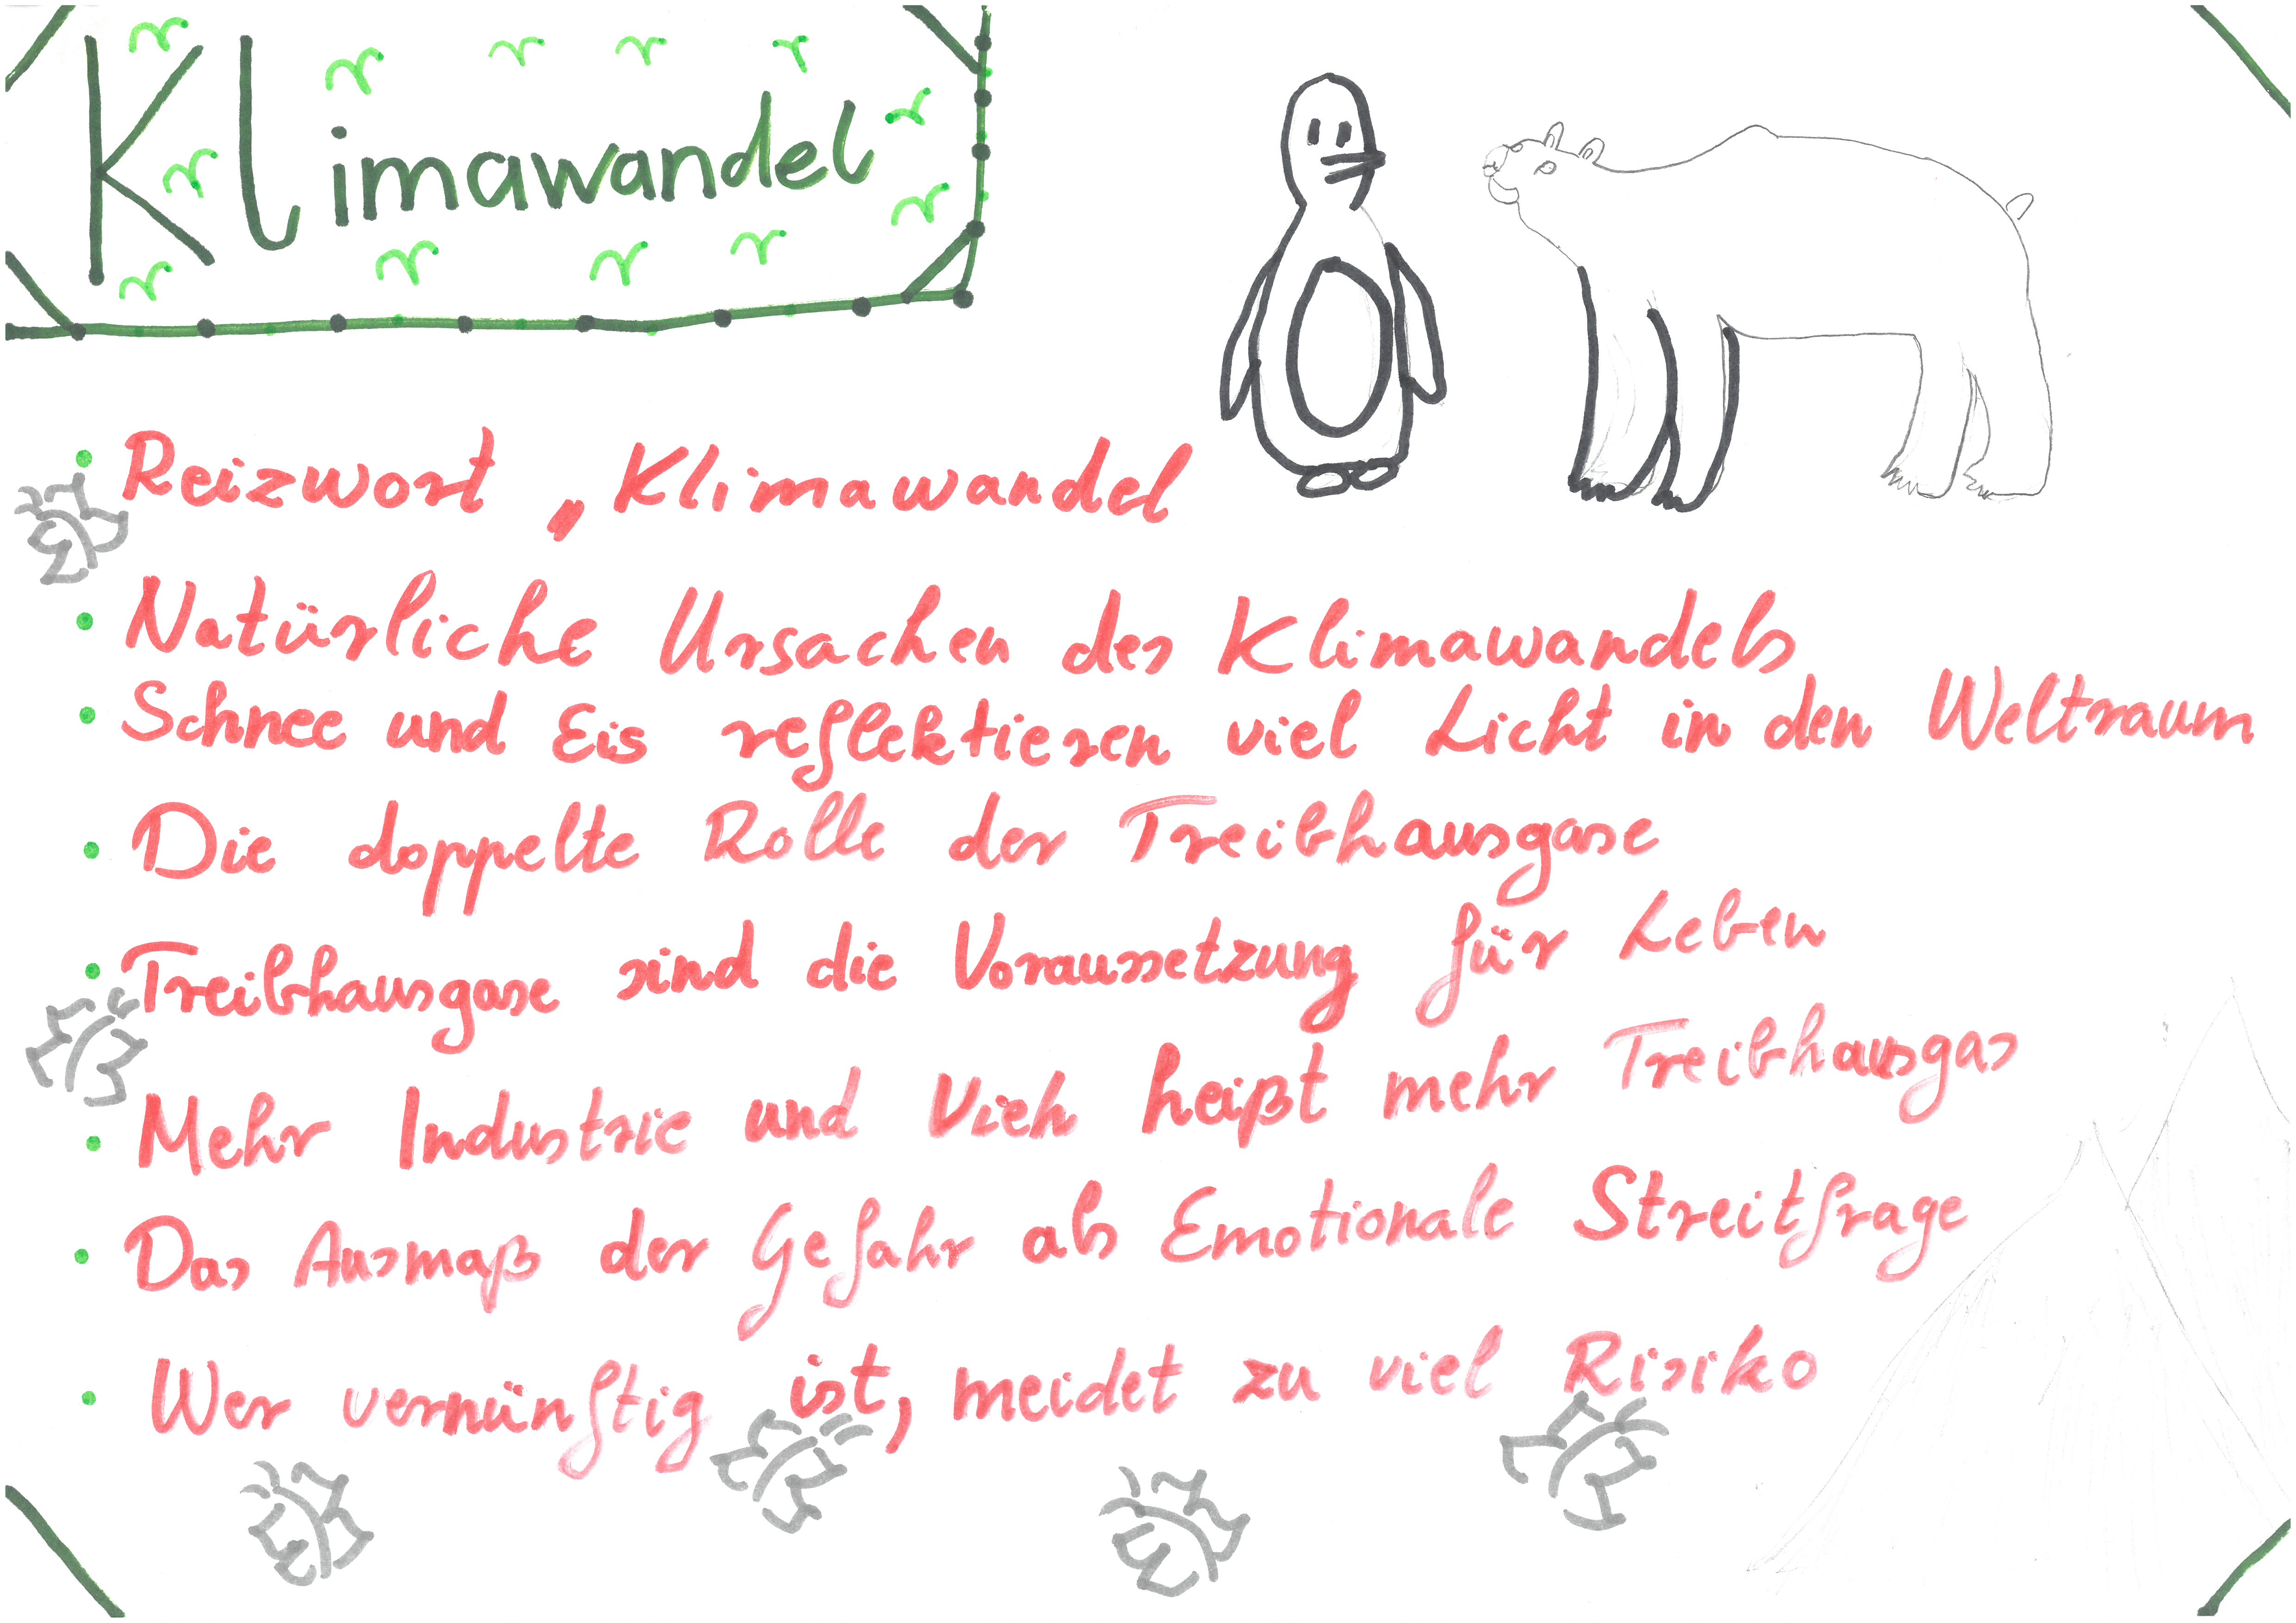 Klimawandel
• Reizwort „Klimawandel
• Natürliche Ursachen des Klimawandels
• Schnee und Eis reflektieren viel Licht in den Weltraum
• Die doppelte Rolle der Treibhausgase
• Treibhausgase sind die Voraussetzung für Leben
• Mehr Industrie und Vieh heißt mehr Treibhausgas
• Das Ausmaß der Gefahr als Emotionale Streitfrage
• Wer vernünftig ist, meidet zu viel Risiko